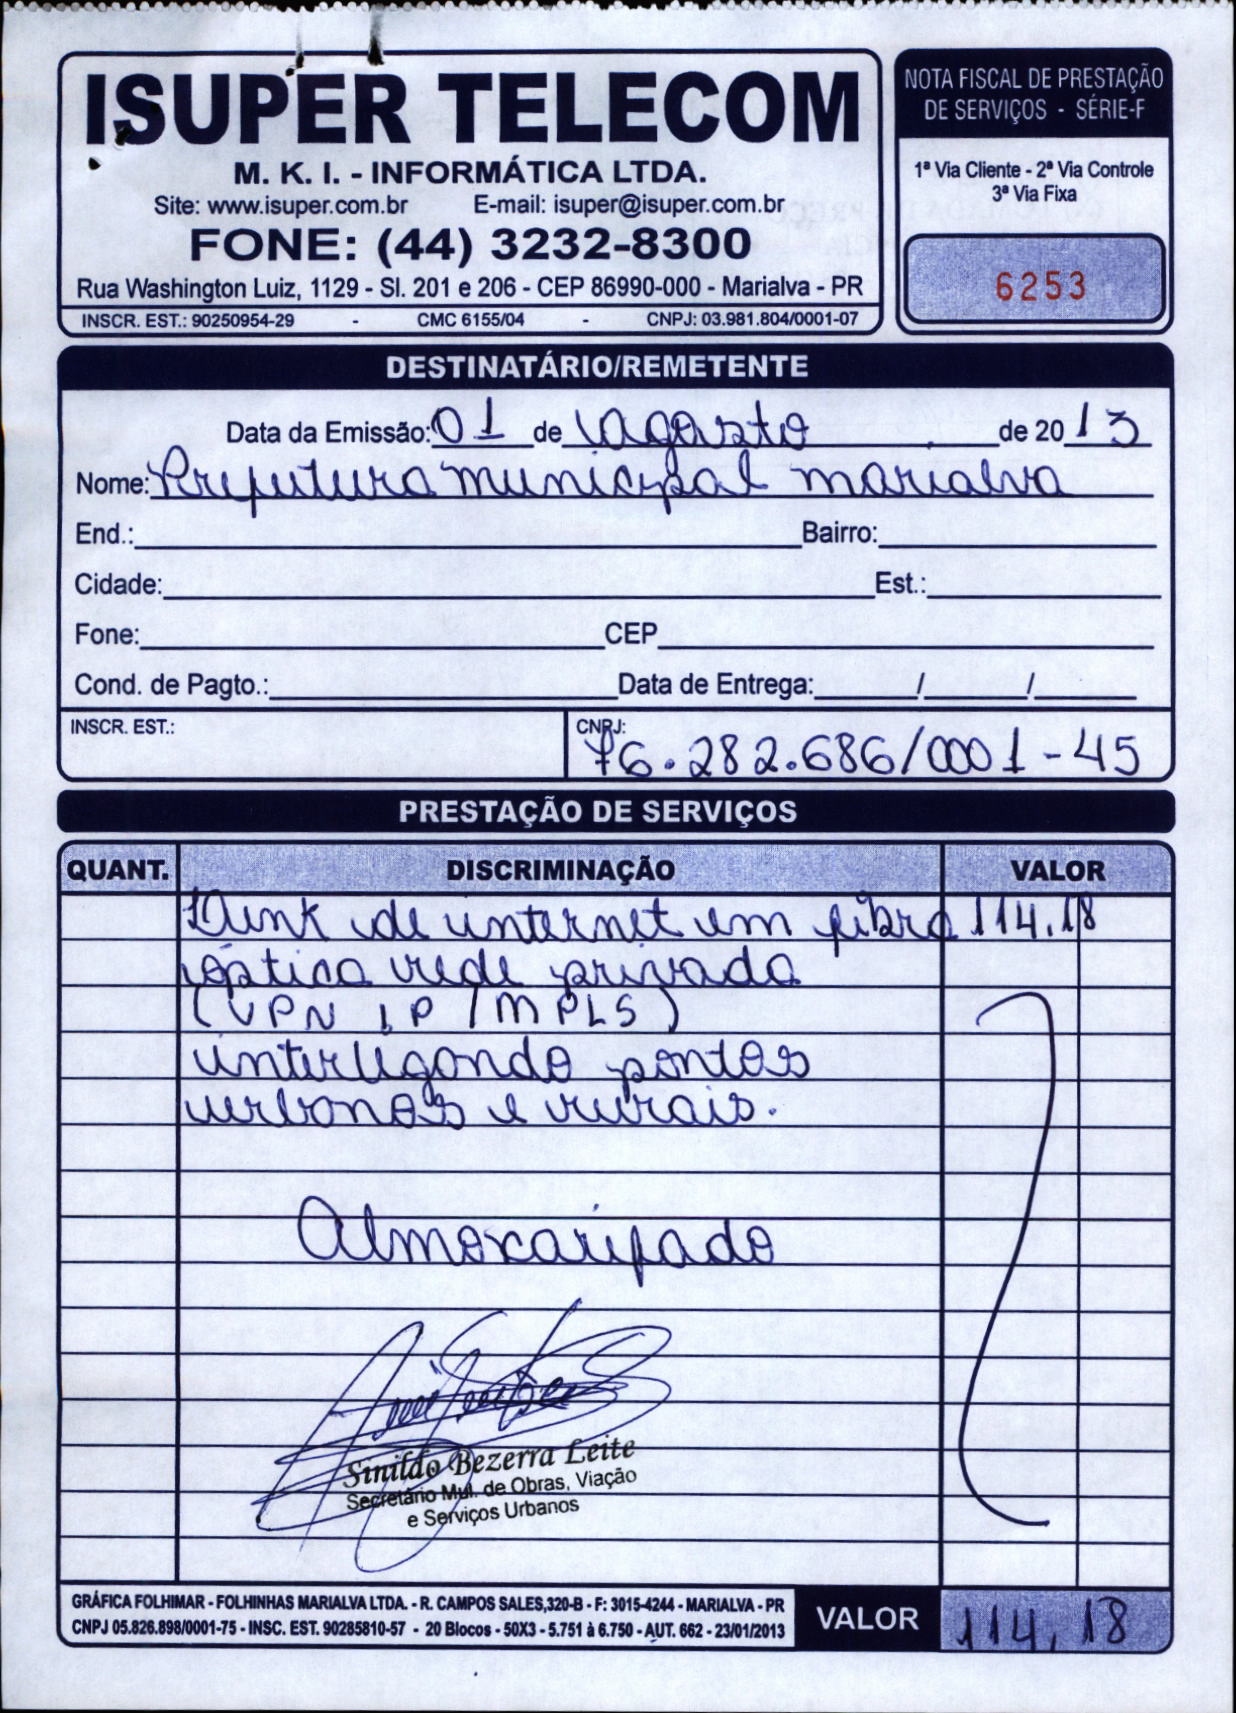 ISUPER TELECOM
M. K. I. - INFORMÁTICA LTDA.
Site: www.isuper.com.br E-mail: isuper@isuper.com.br
FONE: (44) 3232-8300
Rua Washington Luiz, 1129 - Sl. 201 e 206 - CEP 86990-000 - Marialva - PR
INSCR. EST.: 90250954-29 - CMC 6155/04 - CNPJ: 03.981.804/0001-07
NOTA FISCAL DE PRESTAÇÃO
DE SERVIÇOS - SÉRIE-F
1ª Via Cliente - 2ª Via Controle
3ª Via Fixa
6253
DESTINATÁRIO/REMETENTE
Data da Emissão: 01 de agosto de 2013
Nome: Prefeitura municipal marialva
End.: Bairro:
Cidade: Est.:
Fone: CEP
Cond. de Pagto.: Data de Entrega: / /
INSCR. EST.: CNPJ: 76.282.686/0001-45
PRESTAÇÃO DE SERVIÇOS
QUANT. DISCRIMINAÇÃO VALOR
Link de internet em fibra 114,18
óptica rede privada
(VPN IP / MPLS)
interligando pontos
urbanos e rurais.
Almoxarifado
Sinildo Bezerra Leite
Secretário Mul. de Obras, Viação
e Serviços Urbanos
GRÁFICA FOLHIMAR - FOLHINHAS MARIALVA LTDA. - R. CAMPOS SALES,320-B - F: 3015-4244 - MARIALVA - PR
CNPJ 05.826.898/0001-75 - INSC. EST. 90285810-57 - 20 Blocos - 50X3 - 5.751 à 6.750 - AUT. 662 - 23/01/2013
VALOR 114,18